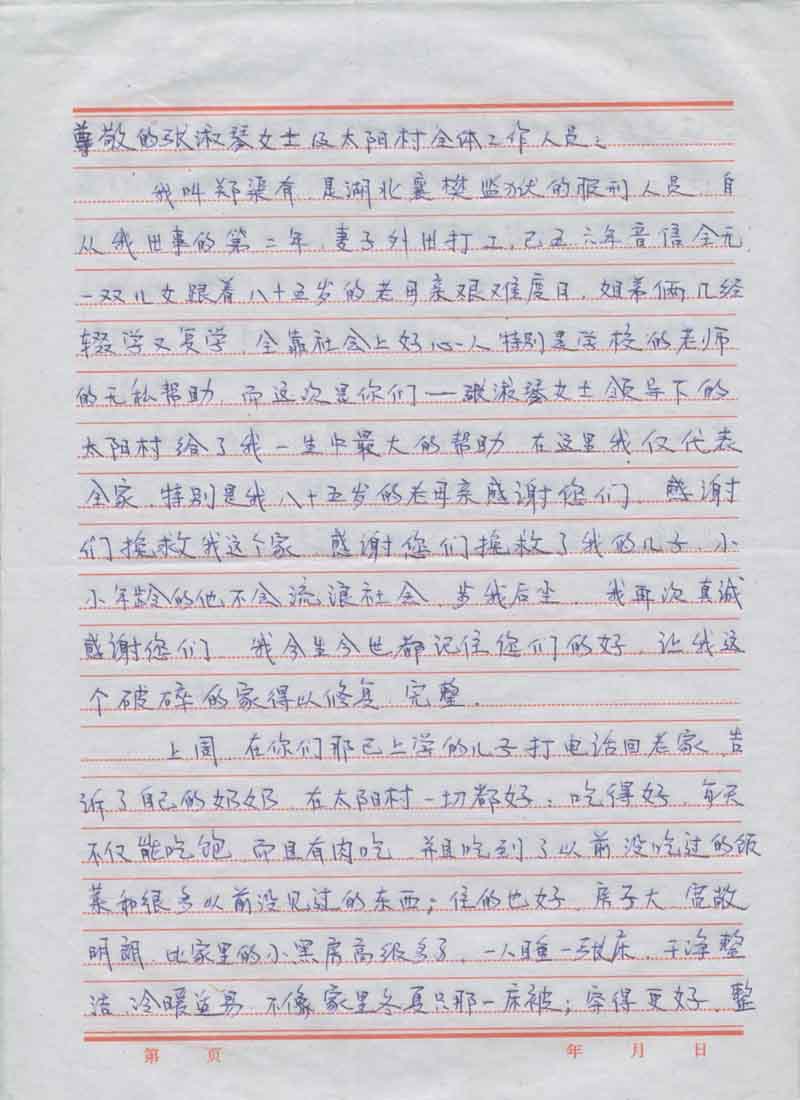 尊敬的张淑琴女士及太阳村全体工作人员：
我叫郑渠有，是湖北襄樊监狱的服刑人员，自
从我出事的第二年，妻子外出打工，已五六年音信全无，
一双儿女跟着八十五岁的老母亲艰难度日，姐弟俩几经
辍学又复学，全靠社会上好心人特别是学校的老师
的无私帮助，而这次是你们——张淑琴女士领导下的
太阳村给了我一生中最大的帮助，在这里我仅代表
全家，特别是我八十五岁的老母亲感谢您们，感谢
们挽救我这个家，感谢您们挽救了我的儿子，小
小年龄的他不会流浪社会，步我后尘，我再次真诚
感谢您们，我今生今世都记住您们的好，让我这
个破碎的家得以修复，完整。
上周，在你们那已上学的儿子打电话回老家，告
诉了自己的奶奶，在太阳村一切都好：吃得好，每天
不仅能吃饱，而且有肉吃，并且吃到了以前没吃过的饭
菜和很多以前没见过的东西；住的也好，房子大，宽敞
明朗，比家里的小黑房高级多了，一人睡一张床，干净整
洁，冷暖益易，不像家里冬夏只那一床被；穿得更好，整
第 页 年 月 日